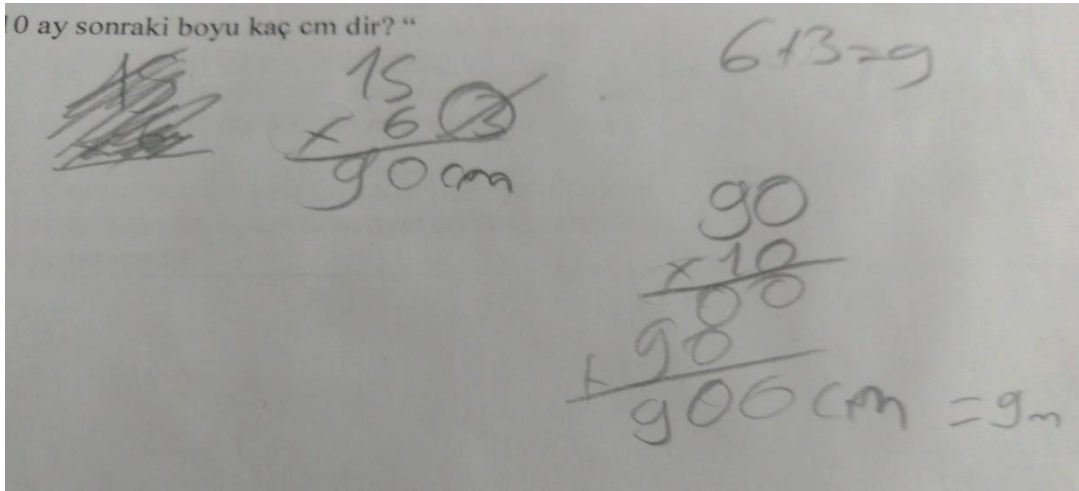 10 ay sonraki boyu kaç cm dir? "
15
x 6 3
90 cm
6+3=9
90
x 10
00
+ 90
900 cm = 9m